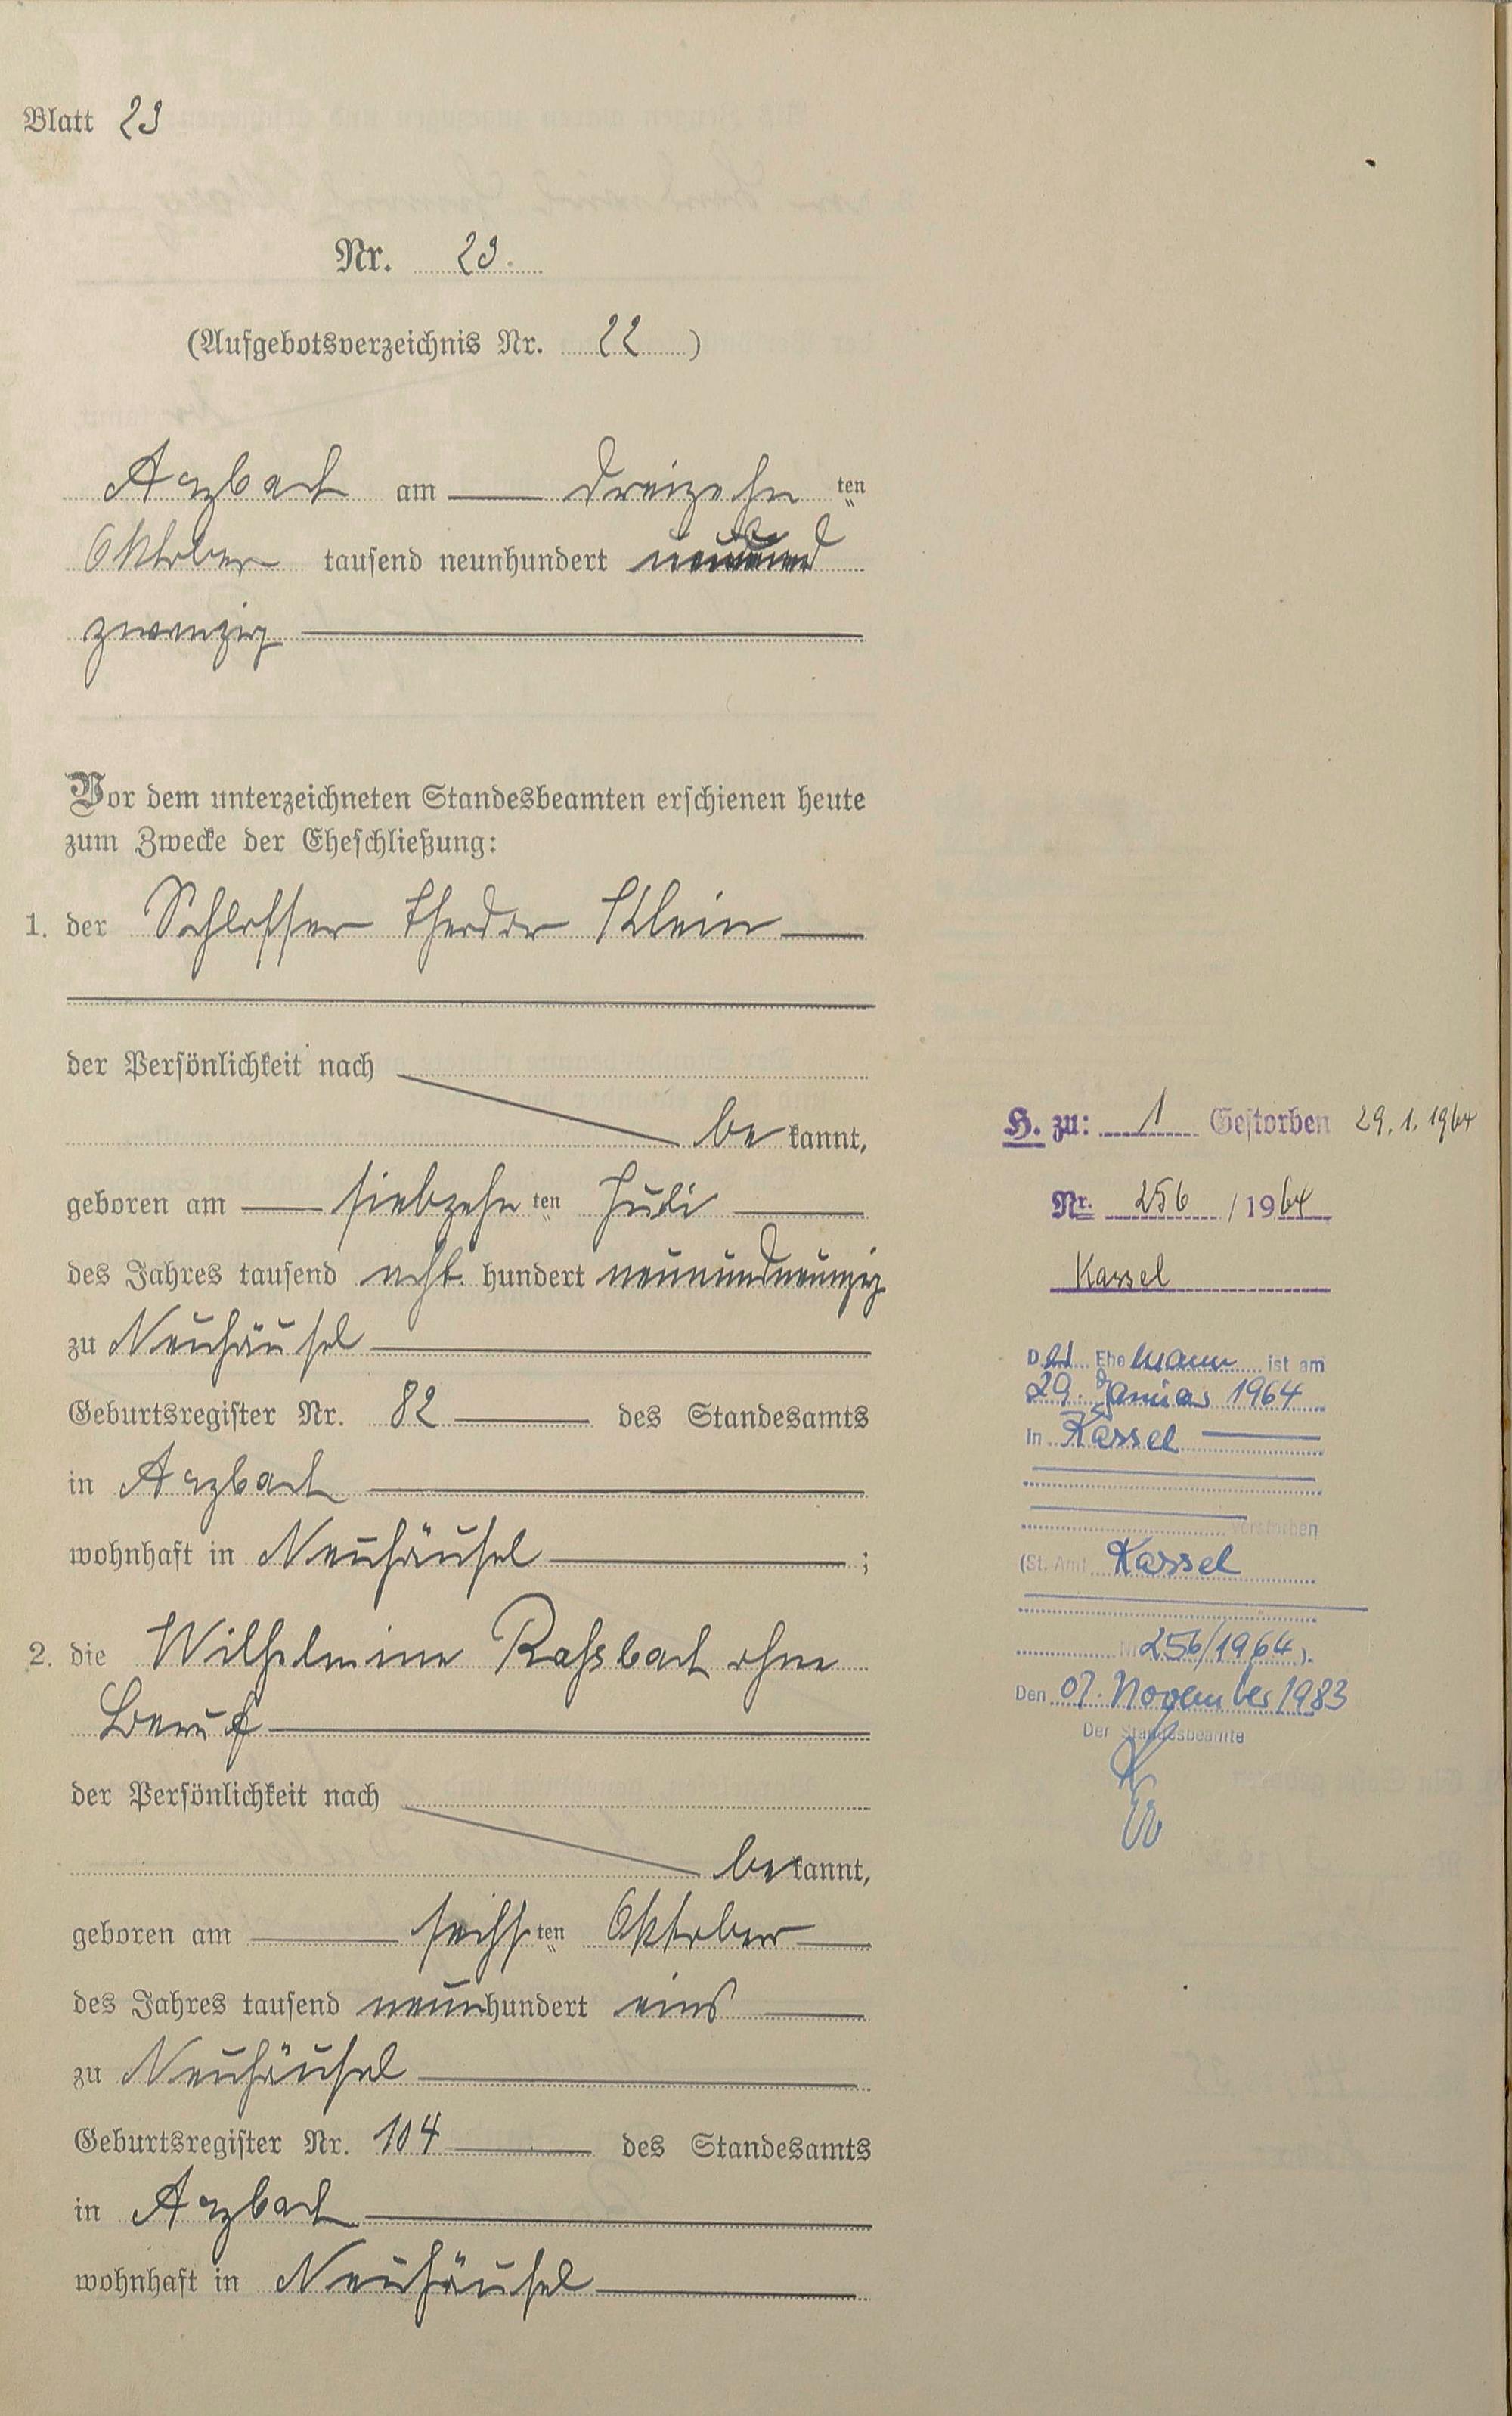 Blatt 23
Nr. 23.
(Aufgebotsverzeichnis Nr. 22)
Arzbach am dreizehnten
Oktober tausend neunhundert
zwanzig
Vor dem unterzeichneten Standesbeamten erschienen heute
zum Zwecke der Eheschließung:
1. der Schlosser Theodor Klein
der Persönlichkeit nach
bekannt,
geboren am siebzehnten Juli
des Jahres tausend acht hundert neunundneunzig
zu Neuhäusel
Geburtsregister Nr. 82 des Standesamts
in Arzbach
wohnhaft in Neuhäusel;
2. die Wilhelmine Raßbach ohne
Beruf
der Persönlichkeit nach
bekannt,
geboren am sechsten Oktober
des Jahres tausend neunhundert eins
zu Neuhäusel
Geburtsregister Nr. 104 des Standesamts
in Arzbach
wohnhaft in Neuhäusel
H. zu: 1 Gestorben 29.1.1964
Nr. 256 / 1964
Kassel
Der Ehemann ist am
29. Januar 1964
in Kassel
verstorben
(St. Amt Kassel
Nr 256/1964).
Den 07. November 1983
Der Standesbeamte